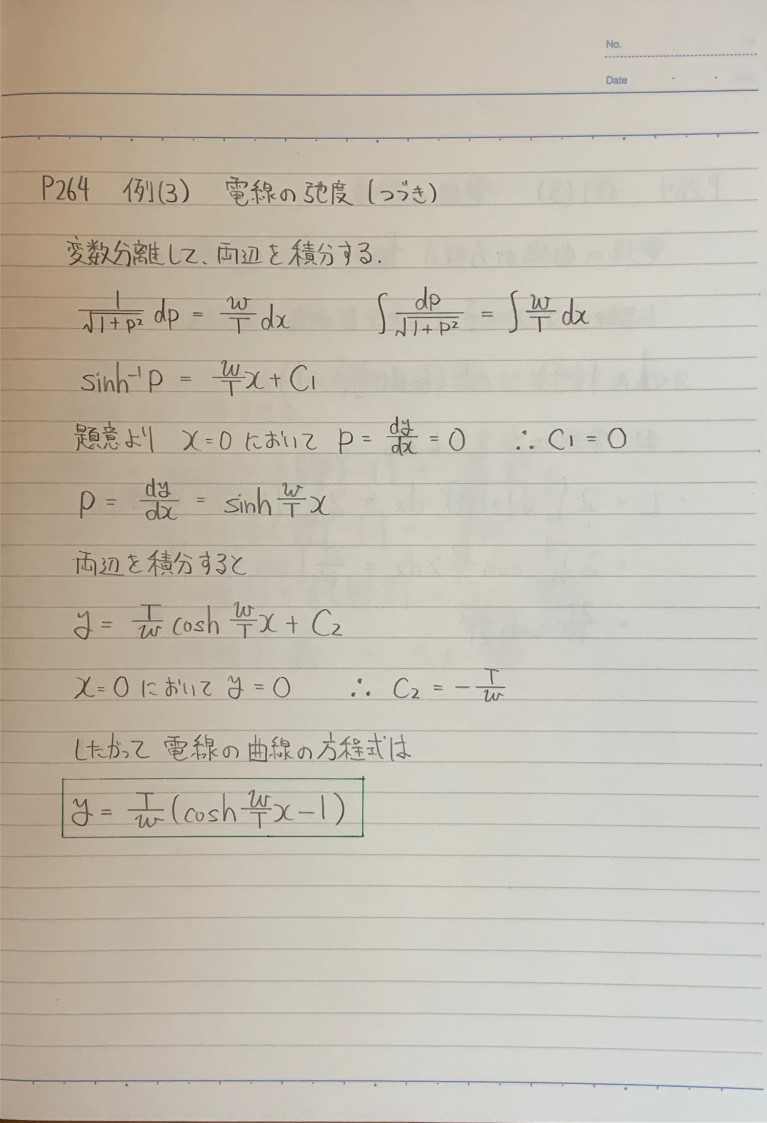 No.
Date
P264 例(3) 電線の弛度(つづき)
変数分離して、両辺を積分する.
1/√(1+p²) dp = w/T dx  ∫ dp/√(1+p²) = ∫ w/T dx
sinh⁻¹p = w/T x + C₁
題意より x=0 において p = dy/dx = 0 ∴ C₁ = 0
p = dy/dx = sinh w/T x
両辺を積分すると
y = T/w cosh w/T x + C₂
x=0 において y=0 ∴ C₂ = -T/w
したがって 電線の曲線の方程式は
y = T/w (cosh w/T x - 1)